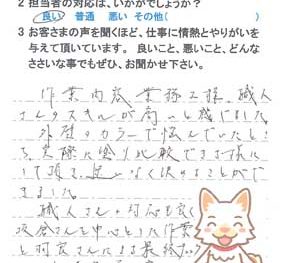 2 担当者の対応は、いかがでしょうか?
良い 普通 悪い その他( )
3 お客さまの声を聞くほど、仕事に情熱とやりがいを
与えて頂いています。 良いこと、悪いこと、どんな
ささいな事でもぜひ、お聞かせ下さい。
作業内容、業務工程、職人
さんのスキルが高いと感じました。
外壁のカラーで悩んでいたとこ
ろ、実際に塗り比較できる様に
して頂き、なく決めることがで
きました。
職人さんの対応も良く
さんを中心とした作業
と さんによる最終